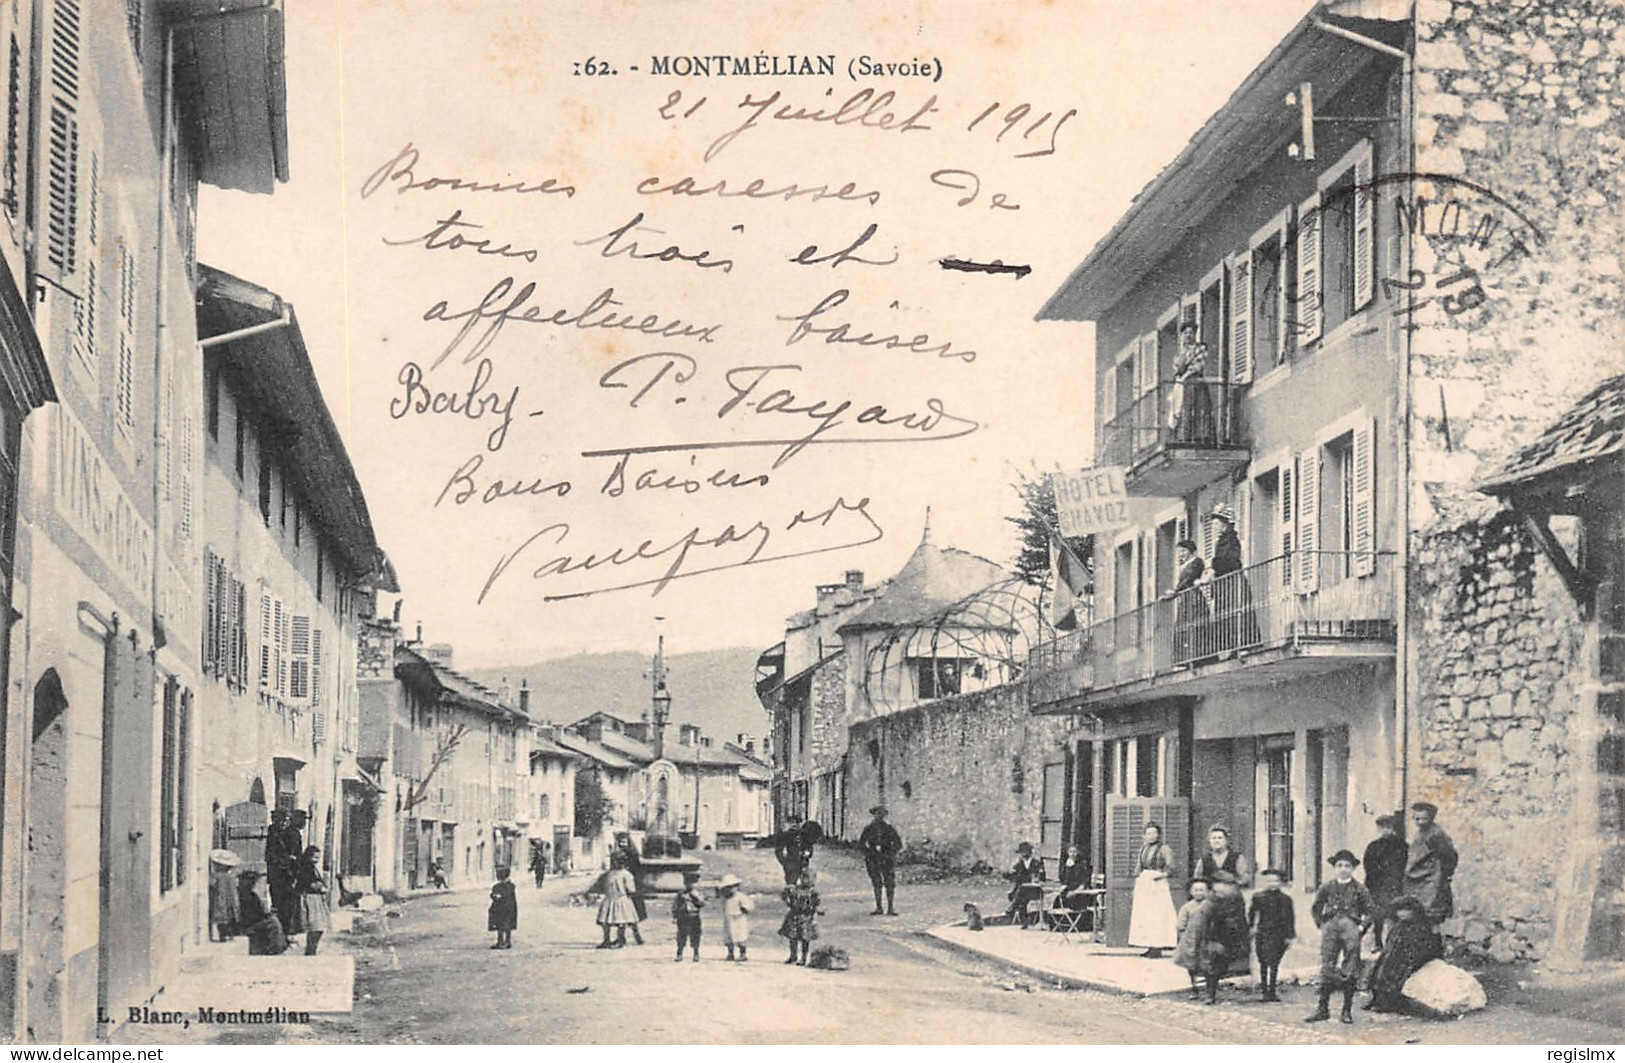 162. - MONTMÉLIAN (Savoie)
21 Juillet 1915
Bonnes caresses de
tous trois et
affectueux baisers
Baby - P. Fayard
Bons Baisers
HOTEL
CHAVOZ
MONT
19
21
VINS
L. Blanc, Montmélian
www.delcampe.net
regislmx